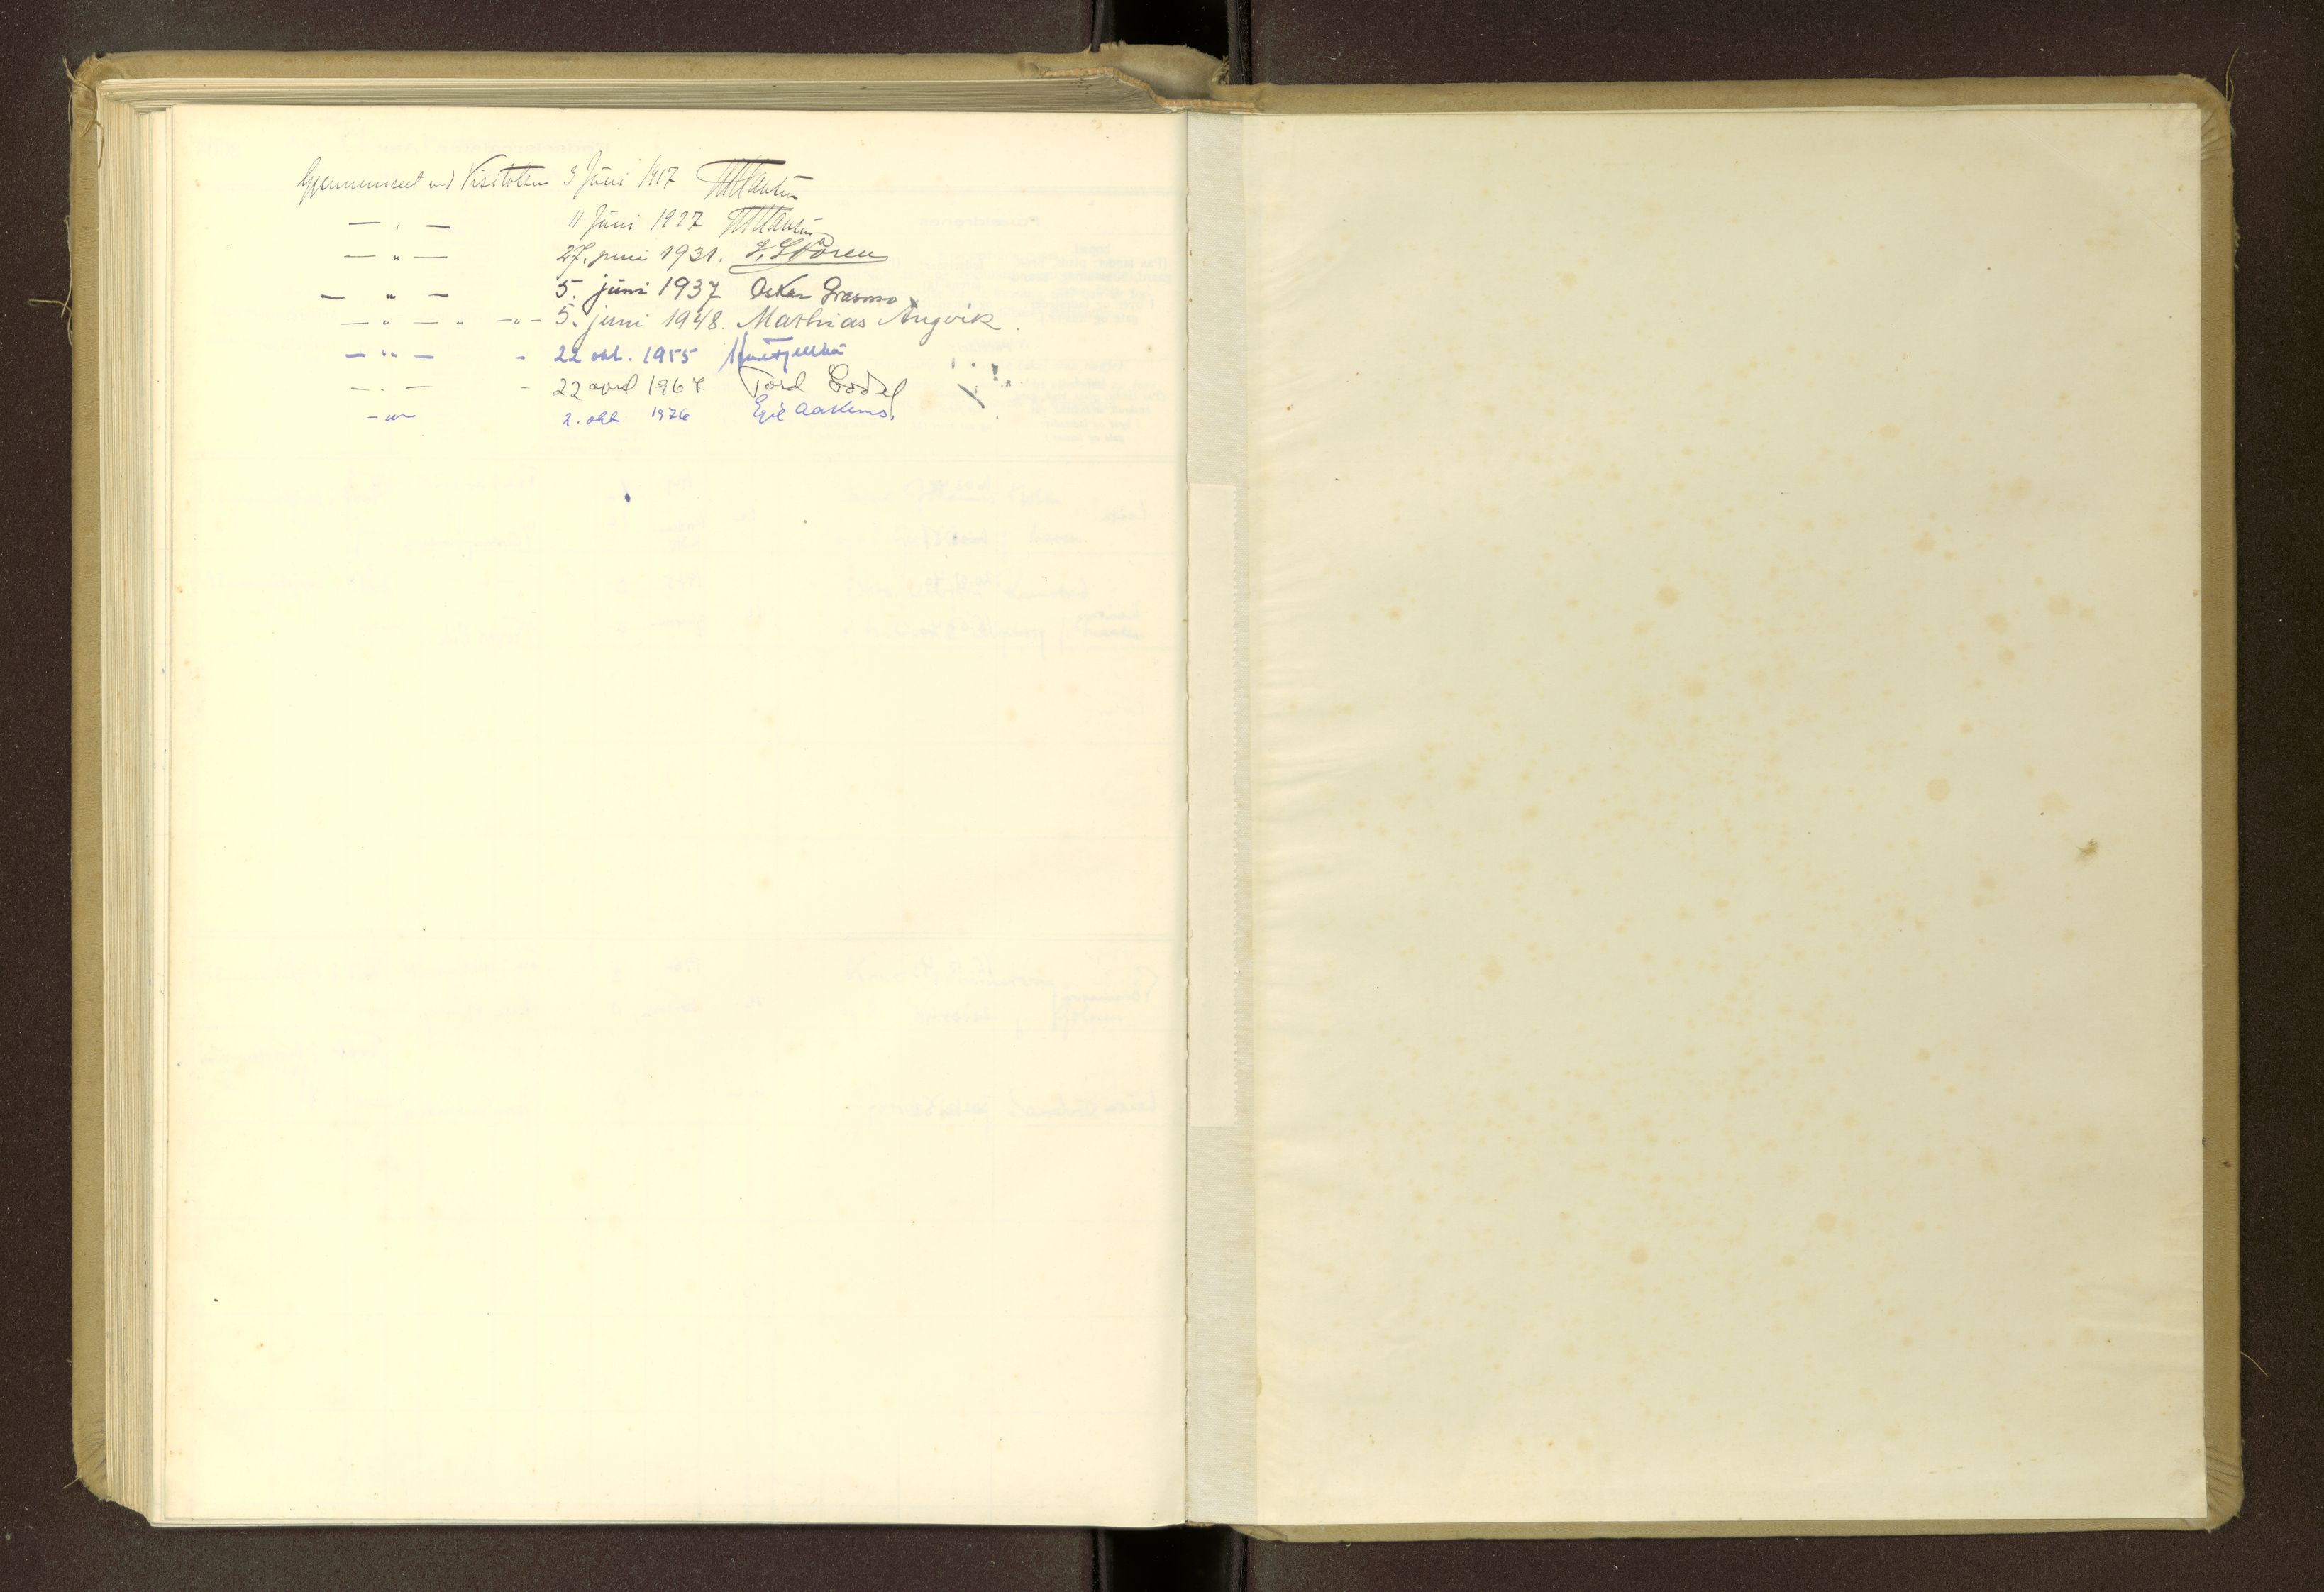 Gjennemseet ved Visitaten 3 Juni 1917
— " — 11 Juni 1927
— " — 27. juni 1931. J. Støren
— " — 5. juni 1937 Oskar Grasmo
— " — " — " — 5. juni 1948. Mathias Angvik.
— " — - 22 okt. 1955
— " — - 22 april 1967 Tord Godal
— " — 2. okt 1976